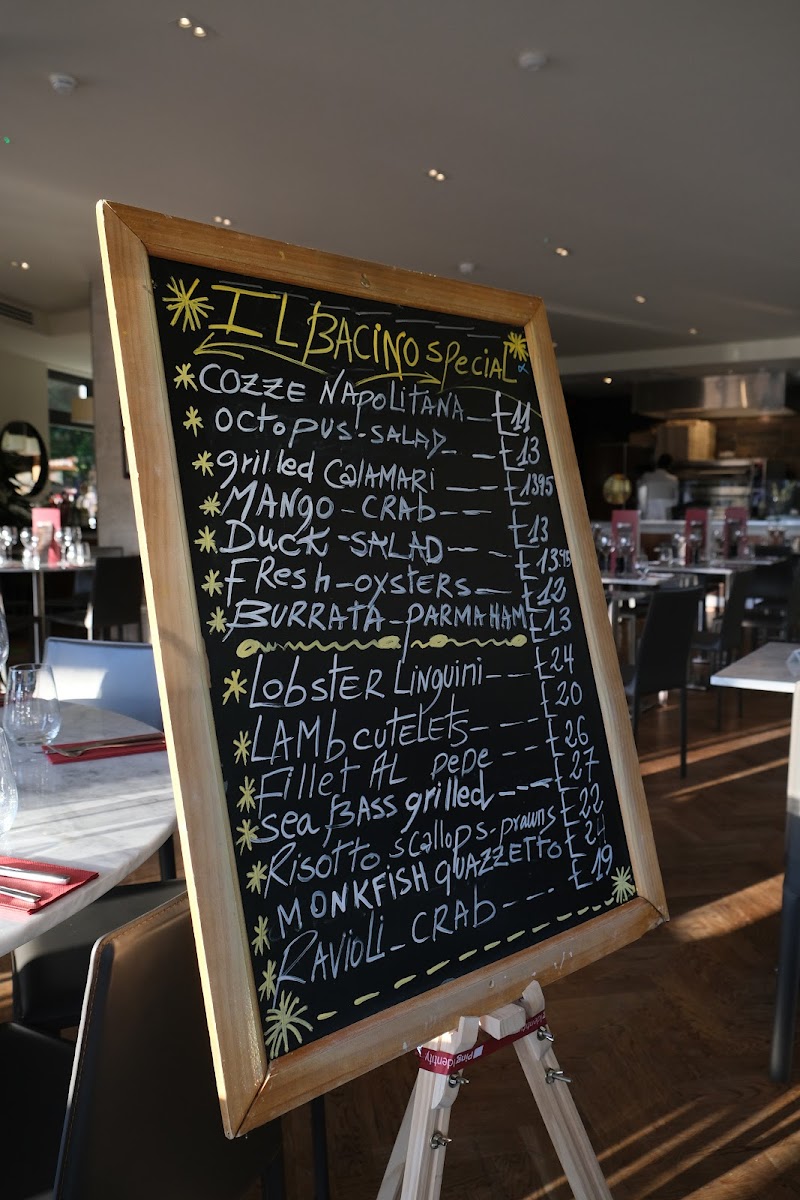 IL BACINO special
COZZE NAPOLITANA — £11
OCTOPUS-SALAD - — £13
grilled CALAMARI — — £1395
MANGO-CRAb — — £13
Duck-SALAD — - £13.95
FResh-oysters — - £12
BURRATA-PARMAHAM £13
LobsTER Linguini - - - £24
LAMb cuteLets - - - - £20
Fillet AL pepe - - - £26
sea BASS grilled - - - £27
Risotto scallops-prawns £22
MONKFISH GUAZZETTO £24
RAVioLi-CRAb - - - £19
PingIdentity